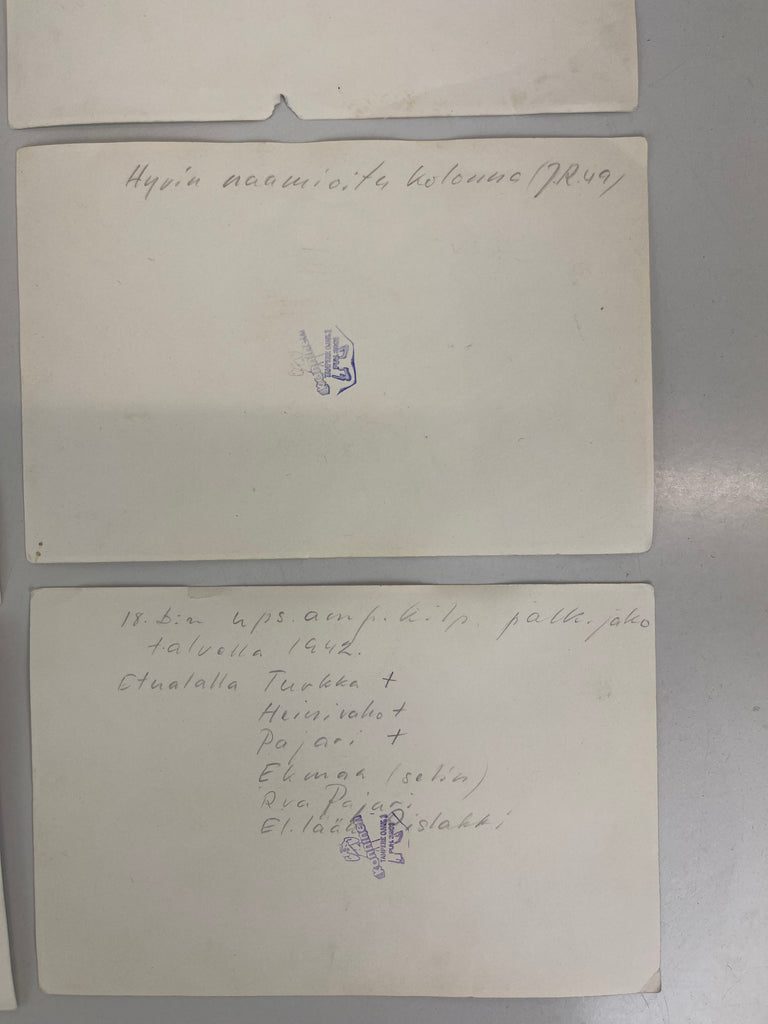 Hyvin naamioitu kolonna (J.R.49)
18. D:n ups. amp. kilp. palk. jako
talvella 1942.
Etualalla Turkka +
Heinivaho +
Pajari +
Ekman (selin)
Rva Pajari
El.lääk
TAMPERE